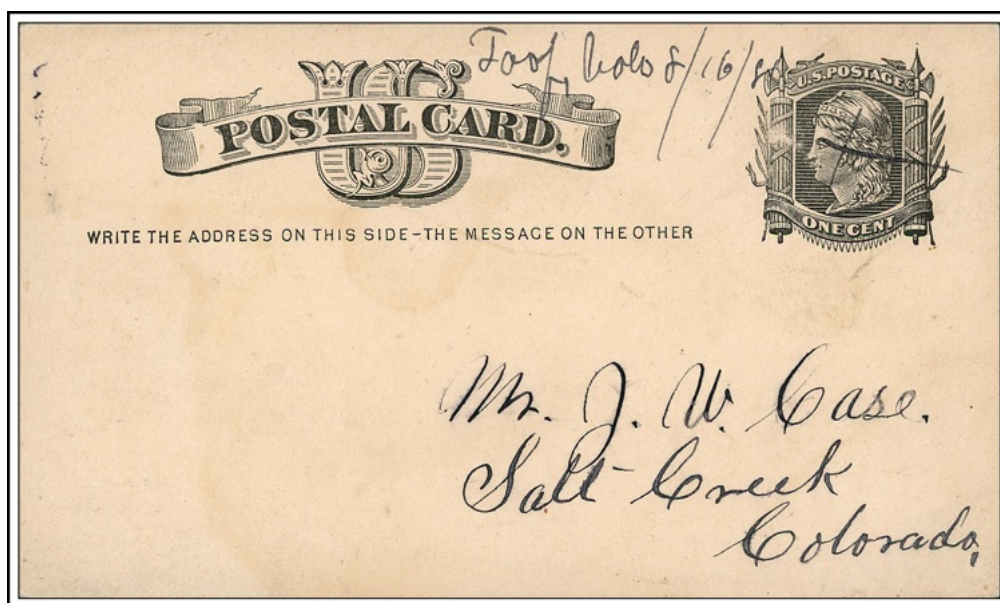 Toof, Colo 8/16/8
U.S. POSTAGE
US
POSTAL CARD.
ONE CENT
WRITE THE ADDRESS ON THIS SIDE-THE MESSAGE ON THE OTHER
Mr. J. W. Case.
Salt Creek
Colorado,